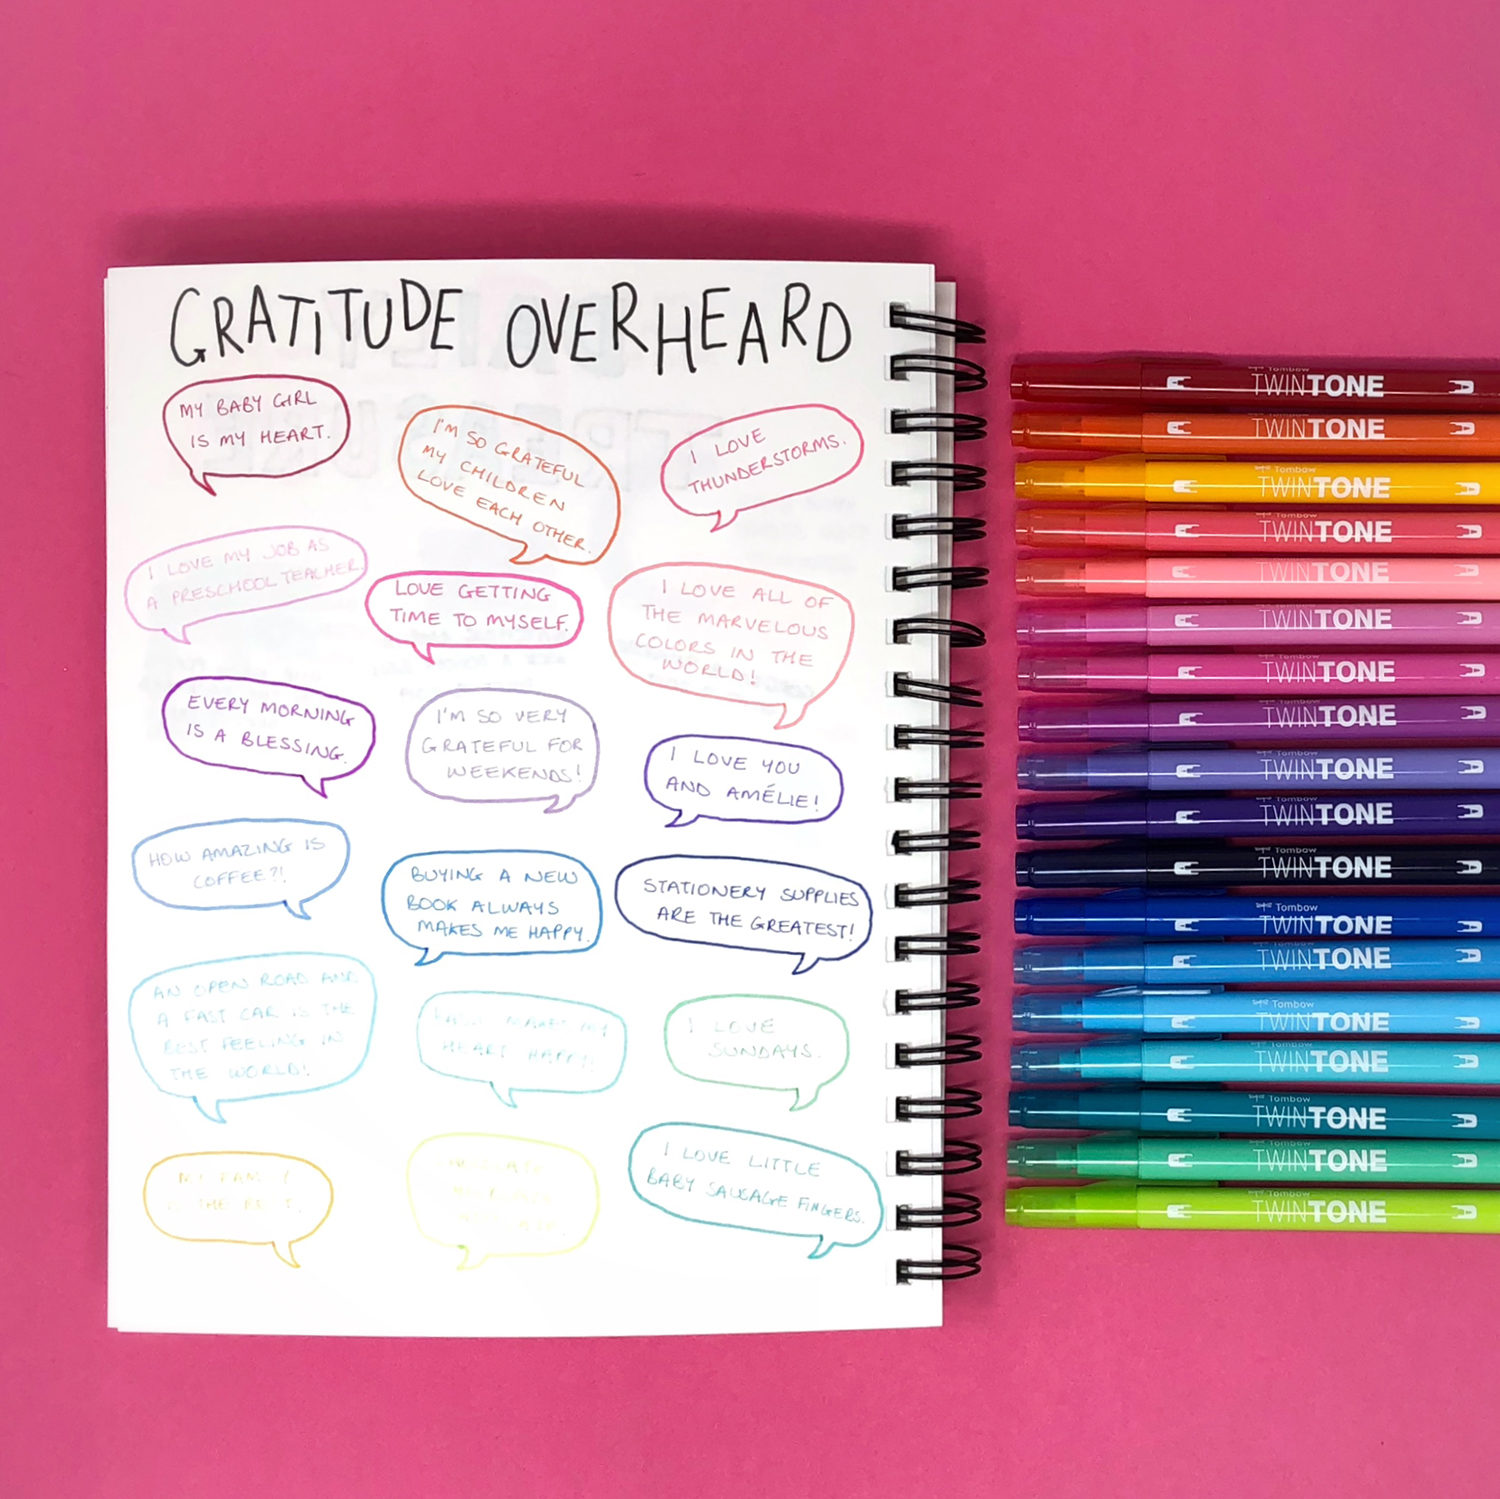 GRATITUDE OVERHEARD
MY BABY GIRL
IS MY HEART.
I'M SO GRATEFUL
MY CHILDREN
LOVE EACH OTHER.
I LOVE
THUNDERSTORMS.
I LOVE MY JOB AS
A PRESCHOOL TEACHER.
LOVE GETTING
TIME TO MYSELF.
I LOVE ALL OF
THE MARVELOUS
COLORS IN THE
WORLD!
EVERY MORNING
IS A BLESSING.
I'M SO VERY
GRATEFUL FOR
WEEKENDS!
I LOVE YOU
AND AMÉLIE!
HOW AMAZING IS
COFFEE?!
BUYING A NEW
BOOK ALWAYS
MAKES ME HAPPY.
STATIONERY SUPPLIES
ARE THE GREATEST!
AN OPEN ROAD AND
A FAST CAR IS THE
BEST FEELING IN
THE WORLD!
MAKES MY
HEART HAPPY!
I LOVE
SUNDAYS.
MY FAMILY
IS THE BEST.
I LOVE LITTLE
BABY SAUSAGE FINGERS.
Tombow
TWINTONE
TWINTONE
Tombow
TWINTONE
TWINTONE
TWINTONE
TWINTONE
TWINTONE
TWINTONE
TWINTONE
Tombow
TWINTONE
Tombow
TWINTONE
Tombow
TWINTONE
TWINTONE
Tombow
TWINTONE
TWINTONE
Tombow
TWINTONE
Tombow
TWINTONE
Tombow
TWINTONE